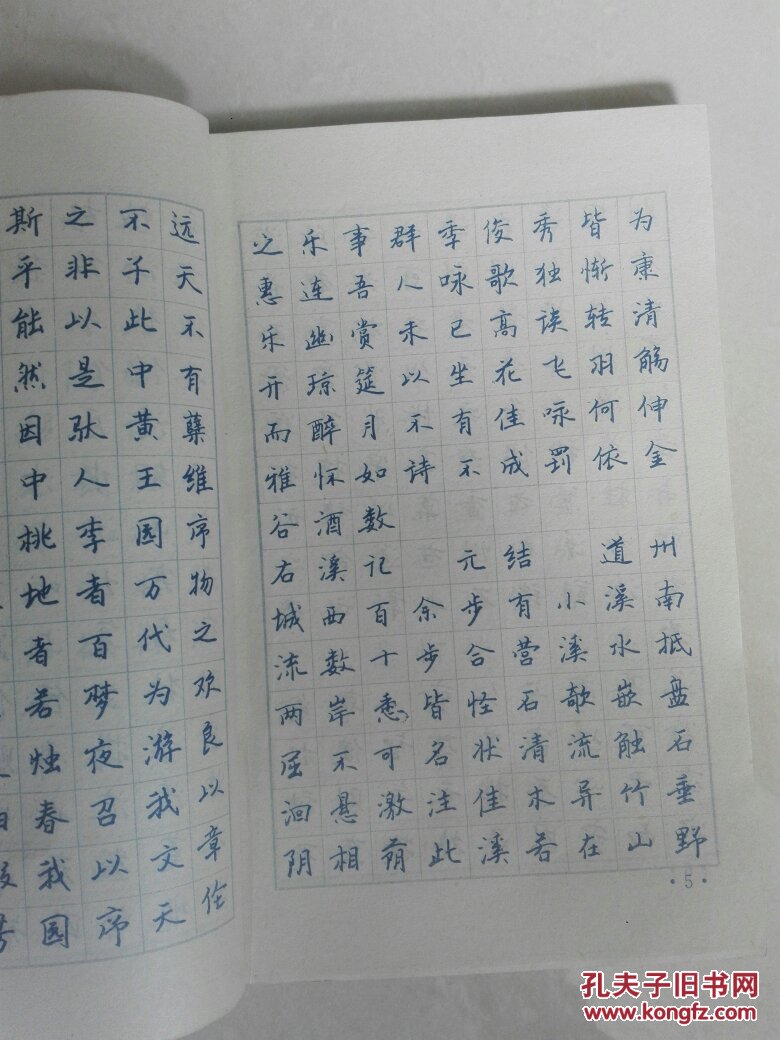 斯之不远
乎非子天
能以此不
然是中有
因驮黄蘖
中人王维
桃李园序
地者万物
者百代之
若梦为欢
烛夜游良
春召我以
我以文章
园序天伦
之乐事群季俊秀皆为
惠连吾人咏歌独惭康
乐幽赏未已高谈转清
开琼筵以坐花飞羽觞
而醉月不有佳咏何伸
雅怀如诗不成罚依金
谷酒数
右溪记 元结 道州
城西百余步有小溪南
流数十步合营溪水抵
两岸悉皆怪石欹嵌盘
屈不可名状清流触石
洄悬激注佳木异竹垂
阴相荫此溪若在山野
·5·
孔夫子旧书网
www.kongfz.com